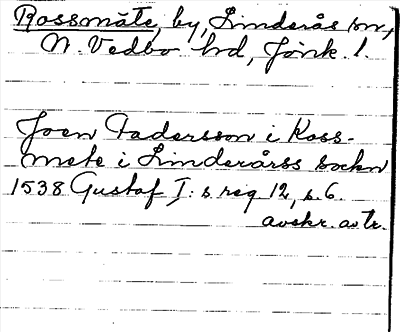 Rossmåte, by, Linderås sn,
N. Vedbo hd, Jönk. l.
Joen Fadersson i Ross-
mete i Linderårss sockn
1538 Gustaf I:s reg 12, s. 6.
avskr. av tr.